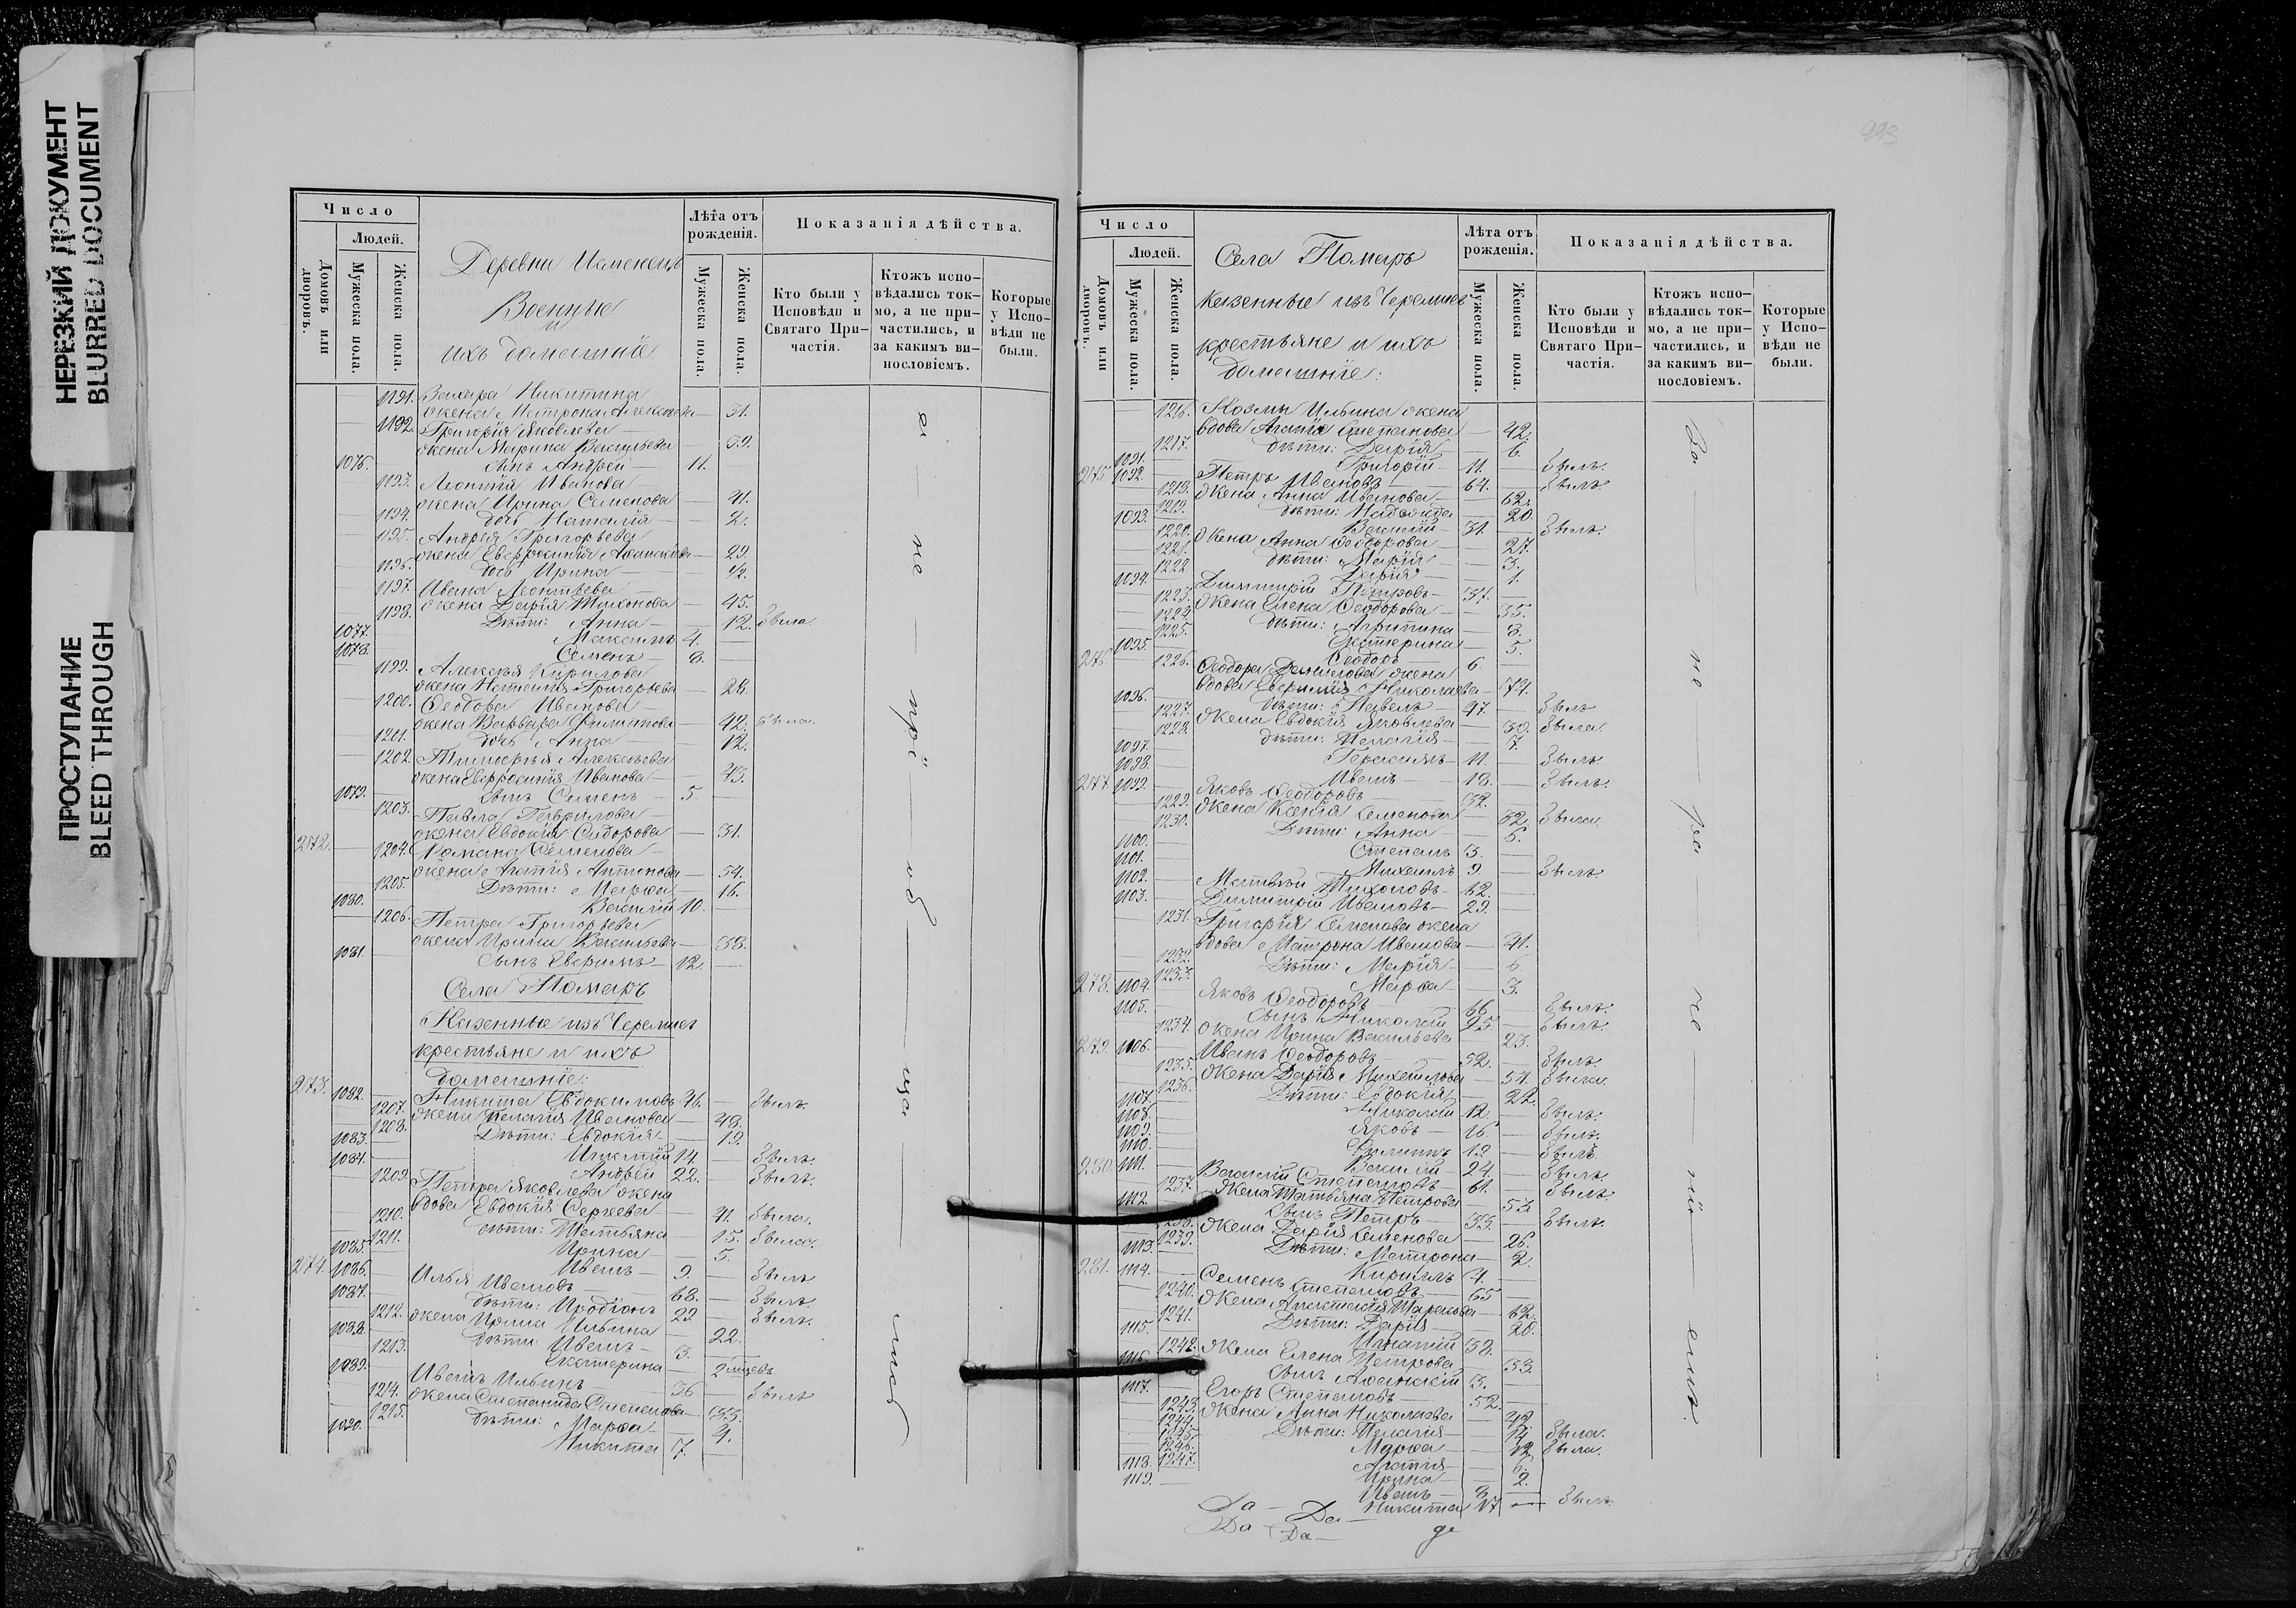 НЕРЕЗКИЙ ДОКУМЕНТ
BLURRED DOCUMENT
ПРОСТУПАНИЕ
BLEED THROUGH
Число
Людей.
Домовъ или дворовъ.
Мужеска пола.
Женска пола.
Деревни
Военные
и
ихъ домашнiе
Лѣта отъ рожденія.
Мужеска пола.
Женска пола.
Показанія дѣйства.
Кто были у Исповѣди и Святаго Причастія.
Ктожъ исповѣдались токмо, а не причастились, и за какимъ винословіемъ.
Которые у Исповѣди не были.
1191. Захара Никитина
жена Матрона Алексѣева 31.
1192. Григорія Яковлева
жена Марина Васильева 39.
1076. сынъ Андрей 11.
1193. Леонтія Иванова
жена Ирина Семенова 41.
1194. дочь Наталія 2.
1195. Андрея Григорьева
жена Евфросинія 29.
1196. дочь Ирина 1/2.
1197. Ивана Леонтьева
жена Дарія Тихонова 45.
1198. Дѣти: Анна 12. была
1077. Максимъ 4.
1078. Семенъ 8.
1199. Алексѣя Кирилова
жена Наталія Григорьева 28.
1200. Ѳеодора Иванова
жена Варвара Филипова 42. была.
1201. дочь Анна 12.
1202. Тимофея Алексѣева
жена Евфросинія Иванова 43.
1079. сынъ Семенъ 5
1203. Павла Гаврилова
жена Евдокія Сидорова 31.
272. 1204. Романа Семенова
жена Агапія Антипова 54.
1205. Дѣти: Марѳа 16.
1080. Василій 10.
1206. Петра Григорьева
жена Ирина Васильева 38.
1081. Сынъ Ефимъ 12.
Села Помаръ
Казенные изъ Черемисъ
крестьяне и ихъ
домашніе:
273. 1082. Никита Евдокимовъ 46. былъ.
1207. жена Пелагія Иванова 48.
1208. Дѣти: Евдокія 19.
1083. Игнатій 14. былъ.
1084. Андрей 22. былъ.
1209. Петра Яковлева жена
вдова Евдокія Сергеева 41. была.
1210. дѣти: Татьяна 15. была.
1211. Ирина 5.
1085. Иванъ 9. былъ
274. 1086. Илья Ивановъ 68. былъ.
1087. дѣти: Иродіонъ 22 былъ.
1212. жена Ирина Ильина 22.
1088. дѣти: Иванъ 3.
1213. Екатерина
1089. Иванъ Ильинъ 36 былъ
1214. жена Степанида Степанова 35.
1215. дѣти: Марѳа 4.
1090. Никита 7.
993
Число
Людей.
Домовъ или дворовъ.
Мужеска пола.
Женска пола.
Села Помаръ
казенные изъ Черемисъ
крестьяне и ихъ
домашніе:
Лѣта отъ рожденія.
Мужеска пола.
Женска пола.
Показанія дѣйства.
Кто были у Исповѣди и Святаго Причастія.
Ктожъ исповѣдались токмо, а не причастились, и за какимъ винословіемъ.
Которые у Исповѣди не были.
1216. Козмы Ильина жена
вдова Агапія Степанова 42.
1217. дѣти: Дарія 6.
1091. Григорій 11. былъ.
275 1092. Петръ Ивановъ 64. былъ.
1218. жена Анна Иванова 62.
1219. дѣти: Надежда 20.
1093. Василій 31. былъ.
1220. жена Анна Ѳеодорова 27.
1221. дѣти: Марія 3.
1222. Дарія 1.
1094. Димитрій Петровъ 37.
1223. жена Елена Ѳеодорова 35.
1224. дѣти: Агрипина 8.
1225. Екатерина 5.
1095. Ѳеодоръ 6
276. 1226. Ѳеодора Данилова жена
вдова Николаева 74.
1096. дѣти: Павелъ 47. былъ
1227. жена Евдокія Яковлева 30. была.
1228. дѣти: Пелагія 7.
1097. Герасимъ 11. былъ.
1098. Иванъ 18. былъ.
277 1099. Яковъ Ѳеодоровъ 32.
1229. жена Ксенія Семенова 32. была.
1230. Дѣти: Анна 6.
1100. Степанъ 3.
1101. Михаилъ 9. былъ.
1102. Матвѣй Тихоновъ 62.
1103. Димитрій Ивановъ 29.
1231. Григорія Семенова жена
вдова Матрона Иванова 41.
1232. Дѣти: Марія 6
1233. Марѳа 3.
278. 1104. Яковъ Ѳеодоровъ 66 былъ.
1105. Сынъ Николай 25. былъ.
1234. жена Ирина Васильева 23.
279. 1106. Иванъ Ѳеодоровъ 52. былъ.
1235. жена Дарія Михайлова 54. была.
1236. Дѣти: Евдокія 22.
1107. Николай 12. былъ.
1108. Яковъ 16. былъ.
1109. Филиппъ 19 былъ.
1110. Василій 24 былъ.
280 1111. Василій Степановъ 61. былъ.
1237. жена Татьяна Петрова 53
1112. Сынъ Петръ 33. былъ.
1238. жена Дарія Семенова 26.
1239. Дѣти: Матрона 2.
1113. Кирилъ 4.
281. 1114. Семенъ Степановъ 65
1240. жена 62.
1241. Дѣти: Дарія 20.
1115. Игнатій 32.
1242. жена Елена Петрова 33.
1116. сынъ Аѳанасій 3.
1117. Егоръ Степановъ 52.
1243. жена Анна Николаева 42
1244. Дѣти: Пелагія 14. была.
1245. Марѳа 12. была.
1246. Агапія 6.
1247. Ирина 2.
1118. Иванъ 8.
1119. Никита 17 былъ
Да Да
Да Да